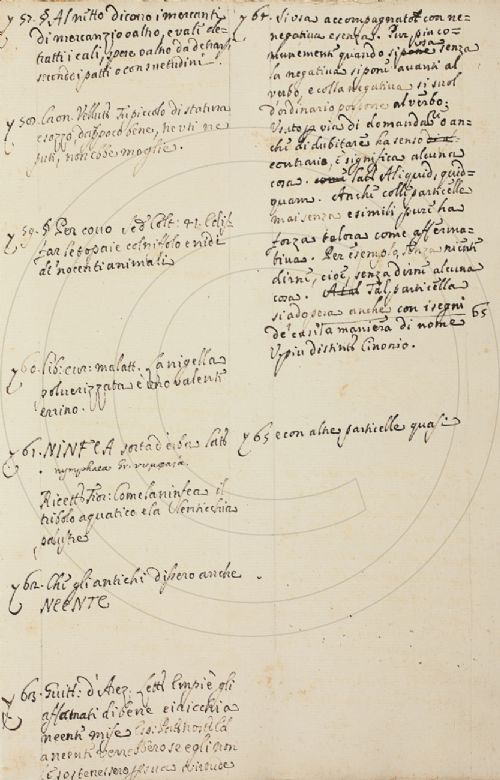 57. § Al nitto dicono i mercanti
di mercanzio valho, e vali de-
tratti i cali, spere valho da detrar-
secondo i patti o consuetudini.
58. Caon. Vellut: Fù piccolo di statura
e sozzo dappoco bene, ne uti ne
suti, non ebbe moglie.
59. § Per covo
far le topaie col niffolo e nidi
di nocenti animali
60. Lib: cur: malatt: La nigella
polverizzata è uno valente
errino.
61. NINFEA sorta d'erba Latt
nymphaea
Ricett: Fior: Come la ninfea il
tribolo aquatico e la Lenticchia
palustre
62. Che gli antichi dissero anche
NEENTE
63. Guitt: d'Arez: Lett: Empiè gli
affamati di bene e i dicchia
neenti mise
a neenti verrebbero se egli non
sostenessero virtude
64. Si usa accompagnato con ne-
negativa e senza. Per più co-
munemente quando si usa senza
la negativa si pone avanti al
verbo, e colla negativa si suol
d'ordinario porsone al verbo.
Usato p via di domanda o an-
che di dubitare ha senso
contrario, e significa alcuna
cosa. Lat Aliquid, quid-
quam. Anche colle particelle
mai senza e simili, pure ha
forza talora come afferma-
tiva. Per esempio, senza nienti
dirmi, cioè, senza dirmi alcuna
cosa. Tal particella
si adopera anche con i segni 65
de' casi a maniera di nome
V. piu distint: Cinonio.
65 e con altre particelle quasi